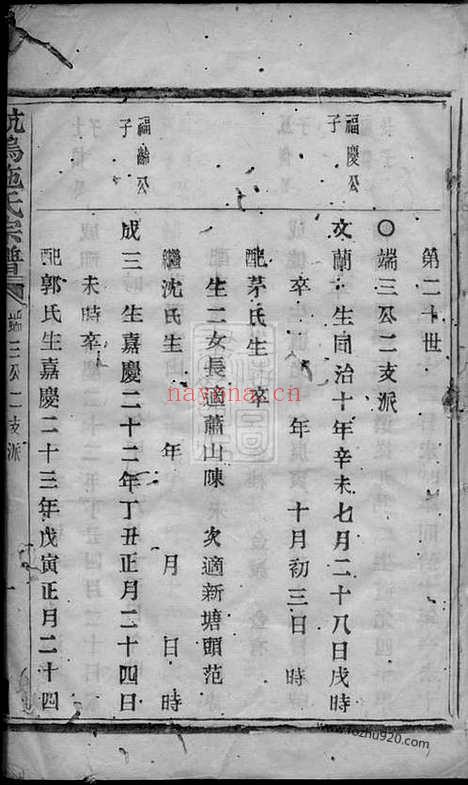 第二十世
○端三公二支派
福慶公子
文蘭 生同治十年辛未七月二十八日戌時
卒 年 十月初三日 時
配茅氏生 卒
生二女長適蕭山陳 次適新塘頭范
繼沈氏生 年 月 日 時
福齡公子
成三 生嘉慶二十二年丁丑正月二十四日
未時卒
配郭氏生嘉慶二十三年戊寅正月二十四
施氏宗譜 端三公二支派 一
nayona.cn
www.fozhu920.com